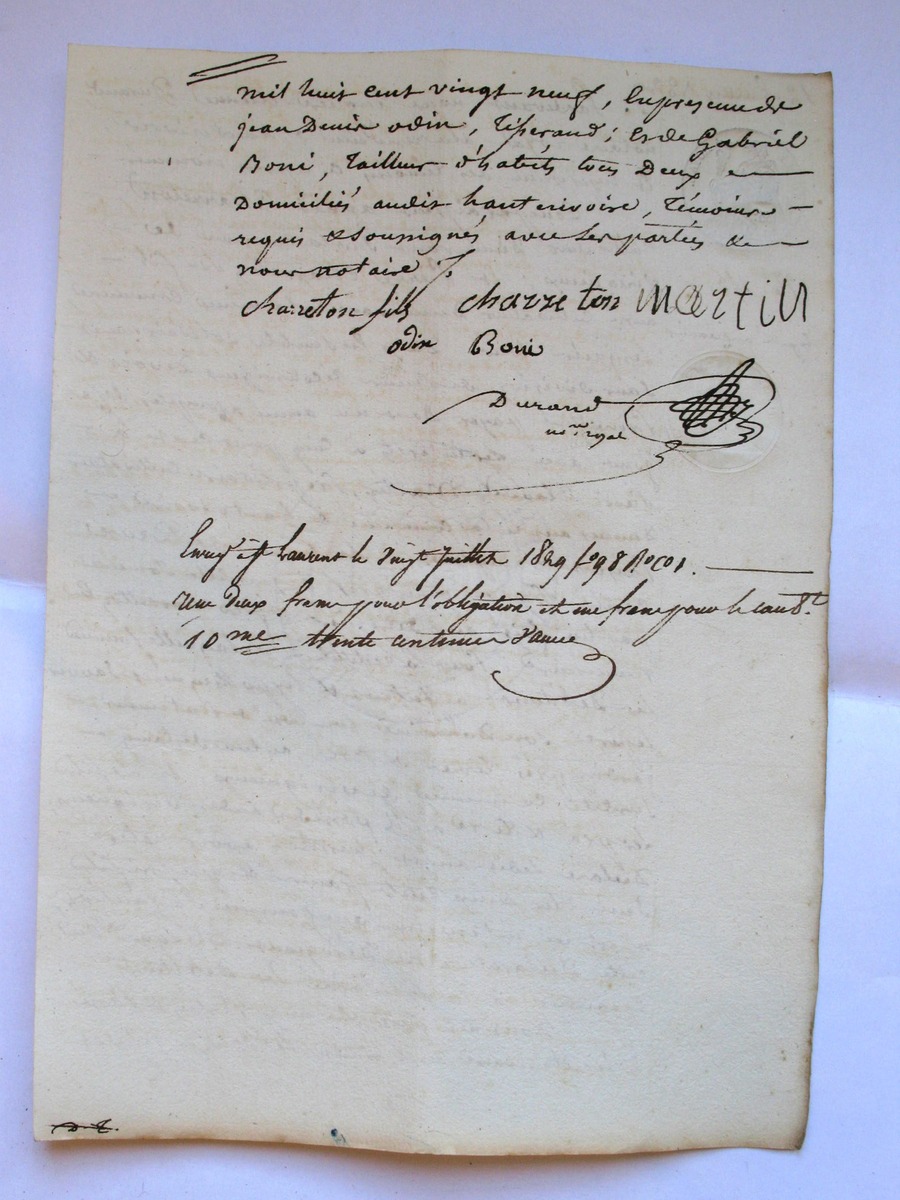 mil huit cent vingt neuf, En presence de
jean Denis odin, Tisserand; Et de Gabriel
Boni, Tailleur d'habits tous Deux
Domiciliés audit hauterivoire, Témoins
requis & soussignés avec les parties &
nous notaire
charreton fils charreton martin
odin Boni
Durand
nre royal
Enreg. à St Laurent le vingt juillet 1829 fo 98 Ro co 1.
reçu deux francs pour l'obligation et un franc pour le caut
10me trente centimes